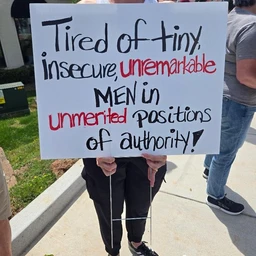 Tired of tiny,
insecure, unremarkable
MEN in
unmerited positions
of authority!